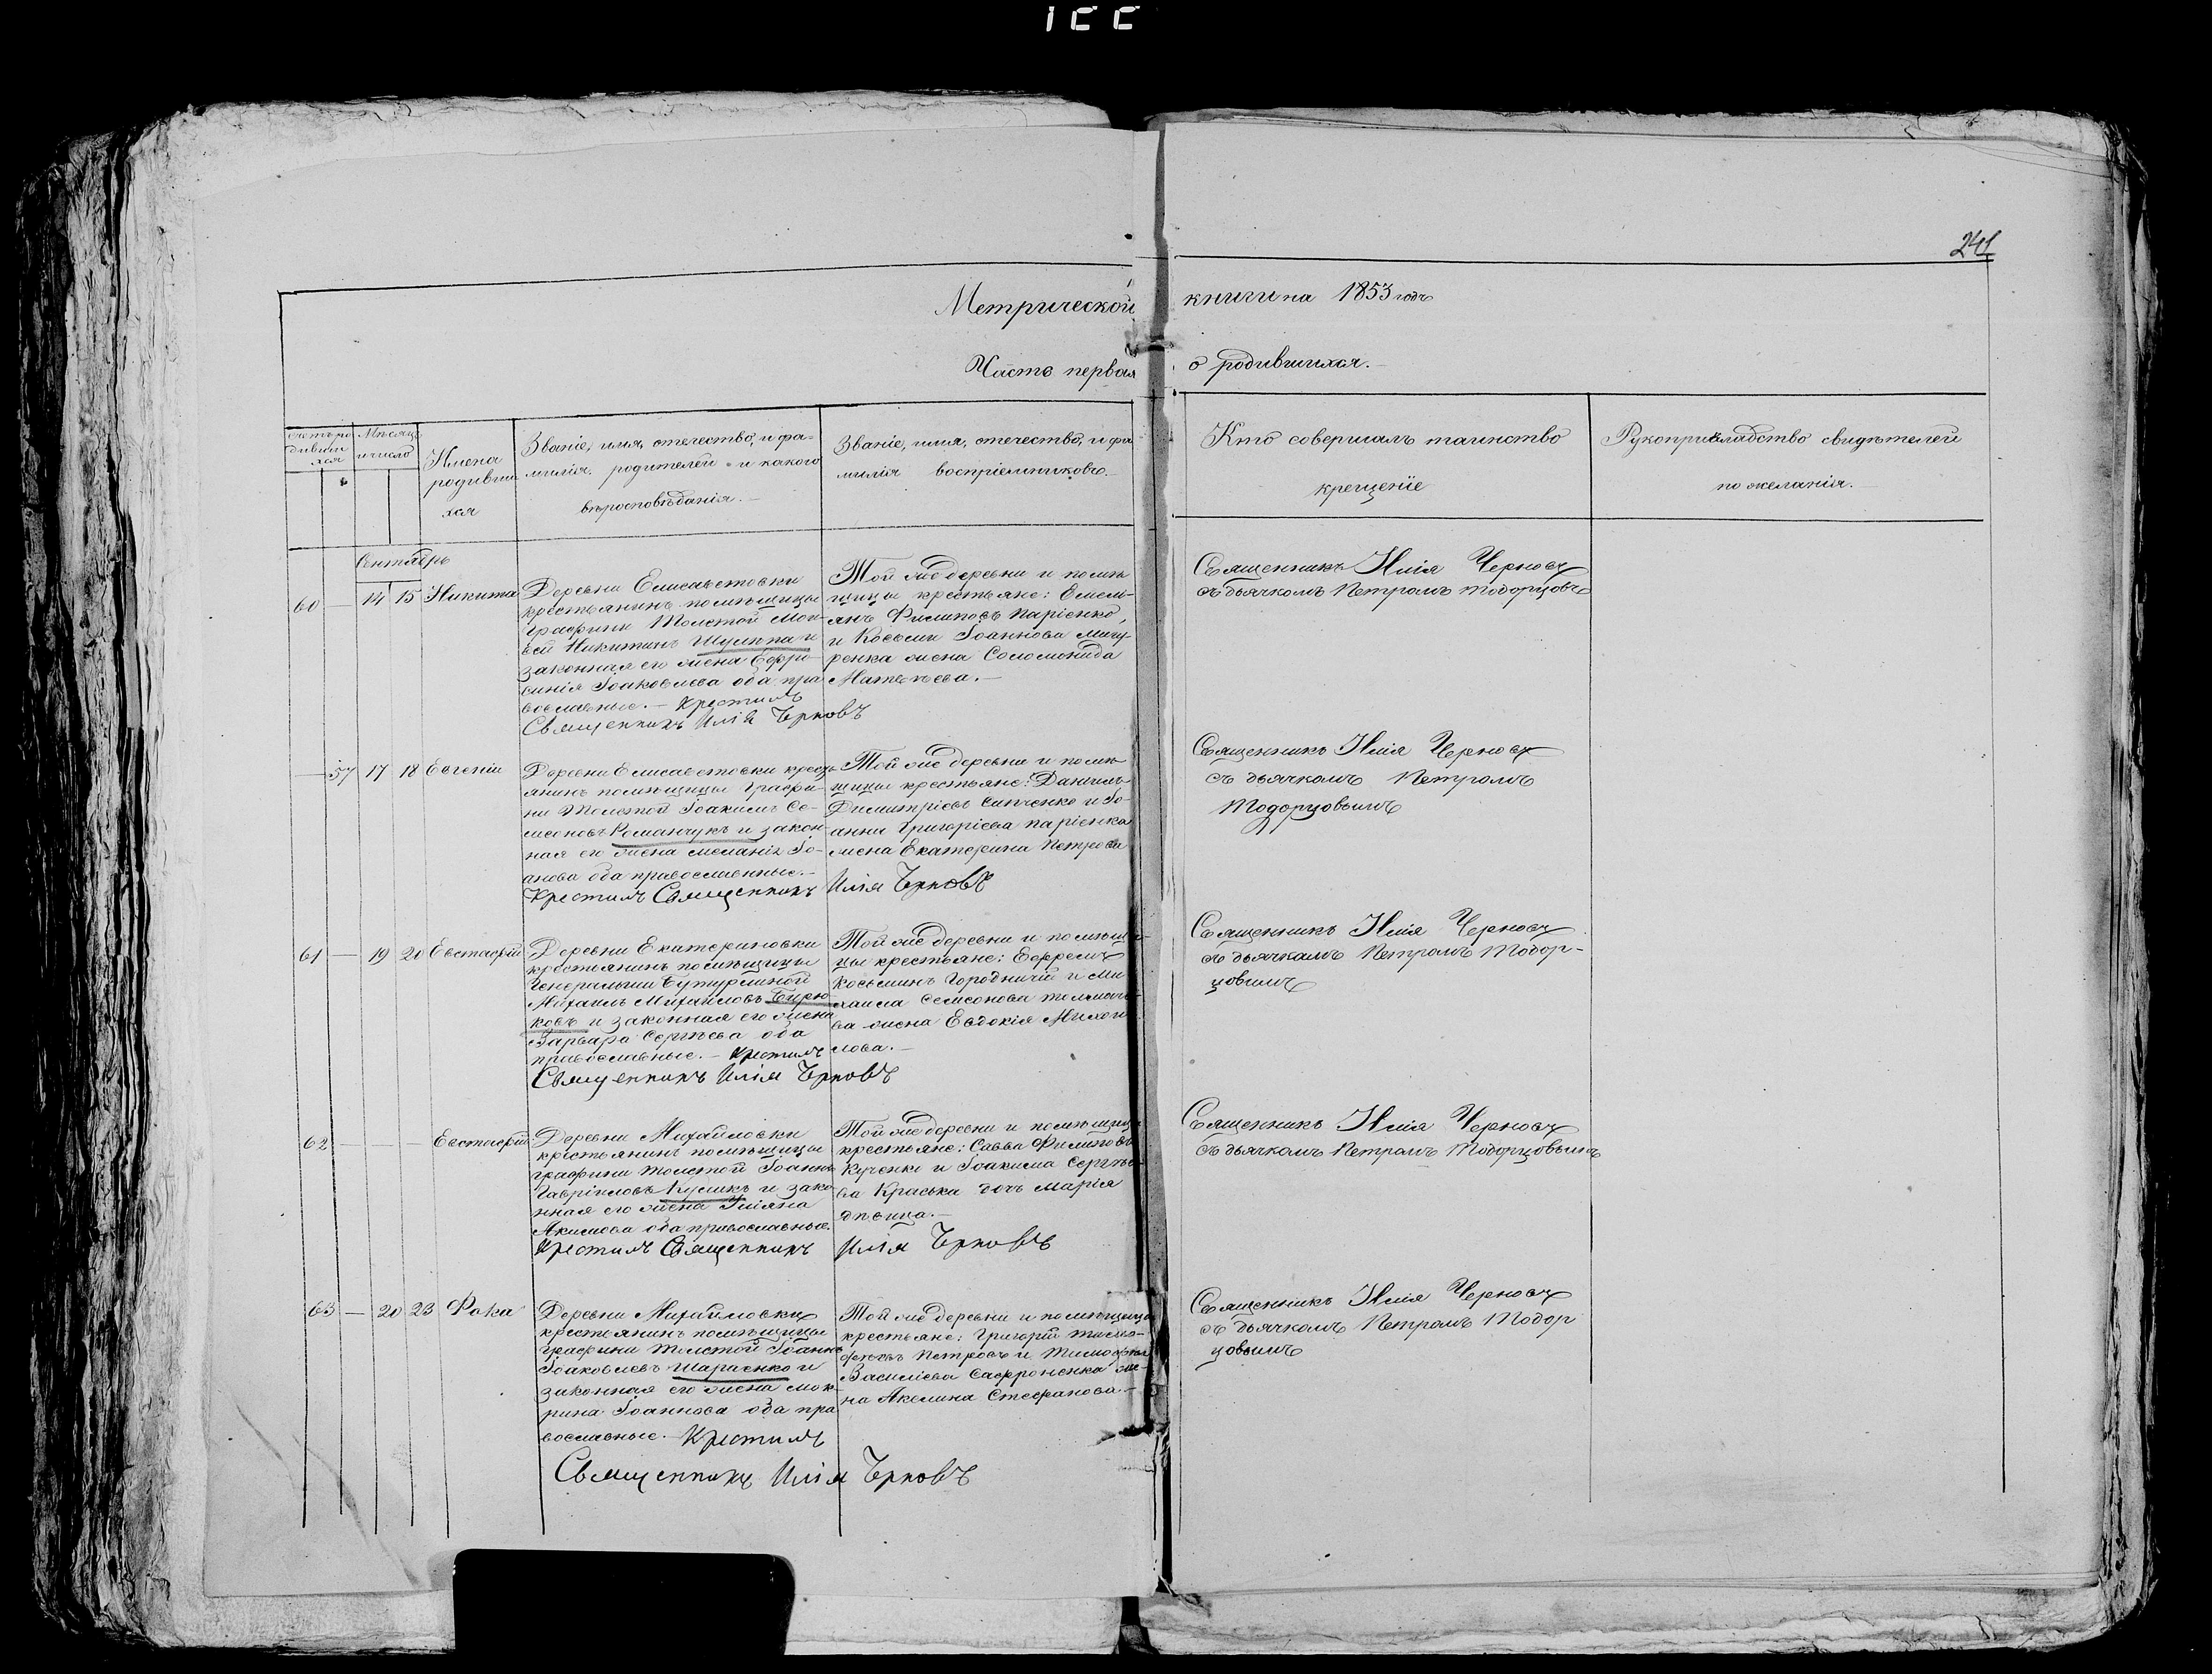 241
Метрической книги на 1853 годъ
Часть первая о родившихся.
Счетъ ро
дивши
хся
Мѣсяцъ
и число
Имена
родивши
хся
Званіе, имя, отечество, и фа-
милія родителей и какого
вѣроисповѣданія.
Званіе, имя, отечество, и фа
милія воспріемниковъ.
Кто совершалъ таинство
крещеніе
Рукоприкладство свидѣтелей
по желанію.
Сентябрь
60 — 14 15 Никита
Деревни Елисаветовки
крестьянинъ помѣщицы
Графини Толстой Мои-
сей Никитинъ Шулпа и
законная его жена Ефро-
синія Іоаковлева оба пра
вославные. — Крестилъ
Священникъ Илія Чрновъ
Той же деревни и помѣ
щицы крестьяне: Емель-
янъ Филиповъ Паріенко,
и Косьми Іоаннова
жена Соломонида
Матвѣева. —
Священникъ Илія Черновъ
съ дьячкомъ Петромъ Тодорцовъ
— 57 17 18 Евгенія
Деревни Елисаветовки крест
янинъ помѣщицы Графи-
ни Толстой Іоакимъ Се-
мсоновъ Романчукъ и закон
ная его жена Меланія Іо-
анова оба православные. —
Крестилъ Священникъ Илія Чрновъ
Той же деревни и помѣ
щицы крестьяне: Даніилъ
Димитріевъ Синченко и Іо-
анна Григоріева Паріенка
жена Екатерина Петрова
Священникъ Илія Черновъ
съ дьячкомъ Петромъ
Тодорцовымъ
61 — 19 20 Евстафій
Деревни Екатериновки
крестьянинъ помѣщицы
Генеральши Бутурлиной
Михаилъ Михайловъ Бирю-
ковъ и законная его жена
Варвара Сергѣева оба
православные. — Крестилъ
Священникъ Илія Чрновъ
Той же деревни и помѣщи-
цы крестьяне: Ефремъ
Косьминъ Городничій и Ми
хаила Семсонова
ва жена Евдокія Михаи
лова. —
Священникъ Илія Черновъ
съ дьячкомъ Петромъ Тодор-
цовымъ
62 — — — Евстафій
Деревни Михайловки
крестьянинъ помѣщицы
графини Толстой Іоаннъ
Гавріиловъ Куликъ и зако
нная его жена Уліяна
Акимова оба православные.
Крестилъ Священникъ Илія Чрновъ
Той же деревни и помѣщицы
крестьяне: Савва Филиповъ
Кученко и Іоакима Сергѣе-
ва Краська дочь Марія
дѣвица. —
Священникъ Илія Черновъ
съ дьячкомъ Петромъ Тодорцовымъ
63 — 20 23 Фока
Деревни Михайловки
крестьянинъ помѣщицы
Графини Толстой Іоаннъ
Іоаковлевъ Шараенко и
законная его жена Мок-
рина Іоаннова оба пра
вославные. — Крестилъ
Священникъ Илія Чрновъ
Той же деревни и помѣщицы
крестьяне: Григорій Тимо-
фѣевъ Петровъ и Тимофея
Василіева Сафроненка же-
на Акелина Стефанова. —
Священникъ Илія Черновъ
съ дьячкомъ Петромъ Тодор
цовымъ